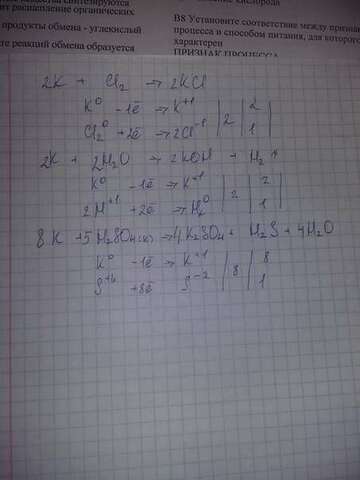 синтезируются
ит расщепление органических
продукты обмена - углекислый
те реакций обмена образуется
кислорода
В8 Установите соответствие между признаком
процесса и способом питания, для которого
характерен
ПРИЗНАК ПРОЦЕССА
2K + Cl₂ → 2KCl
K⁰ -1ē → K⁺¹ | | 2
Cl₂⁰ +2ē → 2Cl⁻¹ | 2 | 1
2K + 2H₂O → 2KOH + H₂↑
K⁰ -1ē → K⁺¹ | | 2
2H⁺¹ +2ē → H₂⁰ | 2 | 1
8K + 5H₂SO₄(к) → 4K₂SO₄ + H₂S + 4H₂O
K⁰ -1ē → K⁺¹ | | 8
S⁺⁶ +8ē S⁻² | 8 | 1